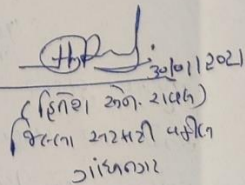 30/01/2021
(હિતેશ એન. રાવલ)
જિલ્લા સરકારી વકીલ
ગાંધીનગર